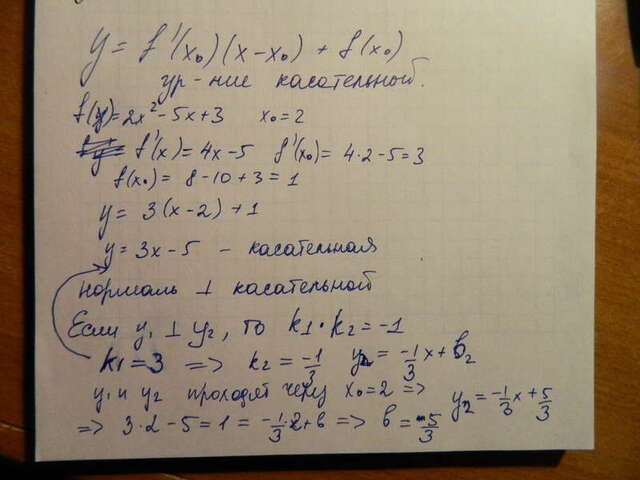 y = f'(x₀)(x-x₀) + f(x₀)
ур-ние касательной.
f(y)=2x²-5x+3 x₀=2
f'(x)=4x-5 f'(x₀)= 4·2-5=3
f(x₀)= 8-10+3=1
y= 3(x-2)+1
y=3x-5 - касательная
нормаль ⊥ касательной
Если y₁ ⊥ y₂, то k₁·k₂=-1
k₁=3 => k₂=-1/3 y₂=-1/3x+b₂
y₁ и y₂ проходят через x₀=2 => y₂=-1/3x+5/3
=> 3·2-5=1=-1/3·2+b => b=5/3